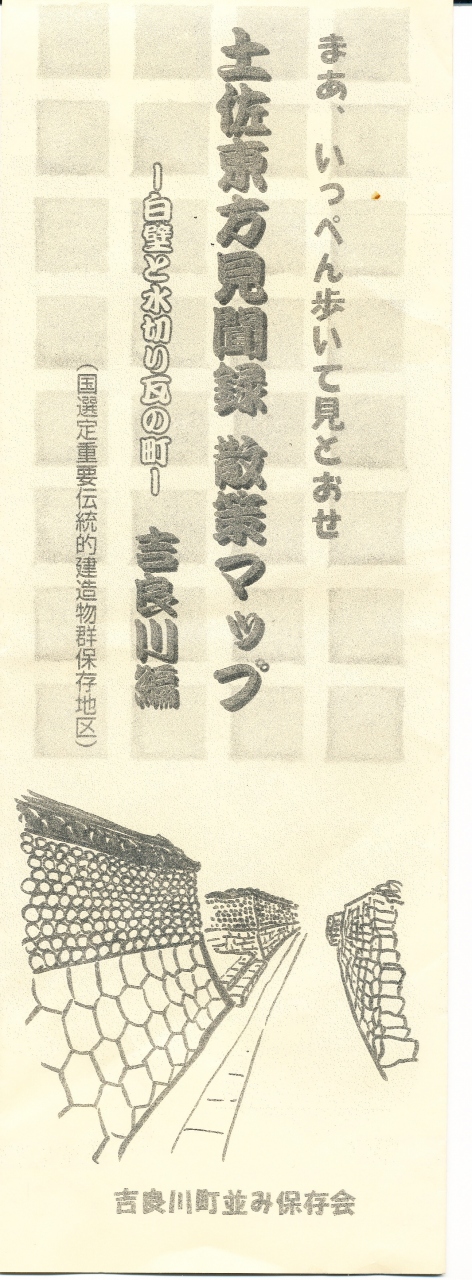 まあ、いっぺん歩いて見とおせ
土佐東方見聞録 散策マップ
―白壁と水切り瓦の町―
吉良川編
(国選定重要伝統的建造物群保存地区)
吉良川町並み保存会